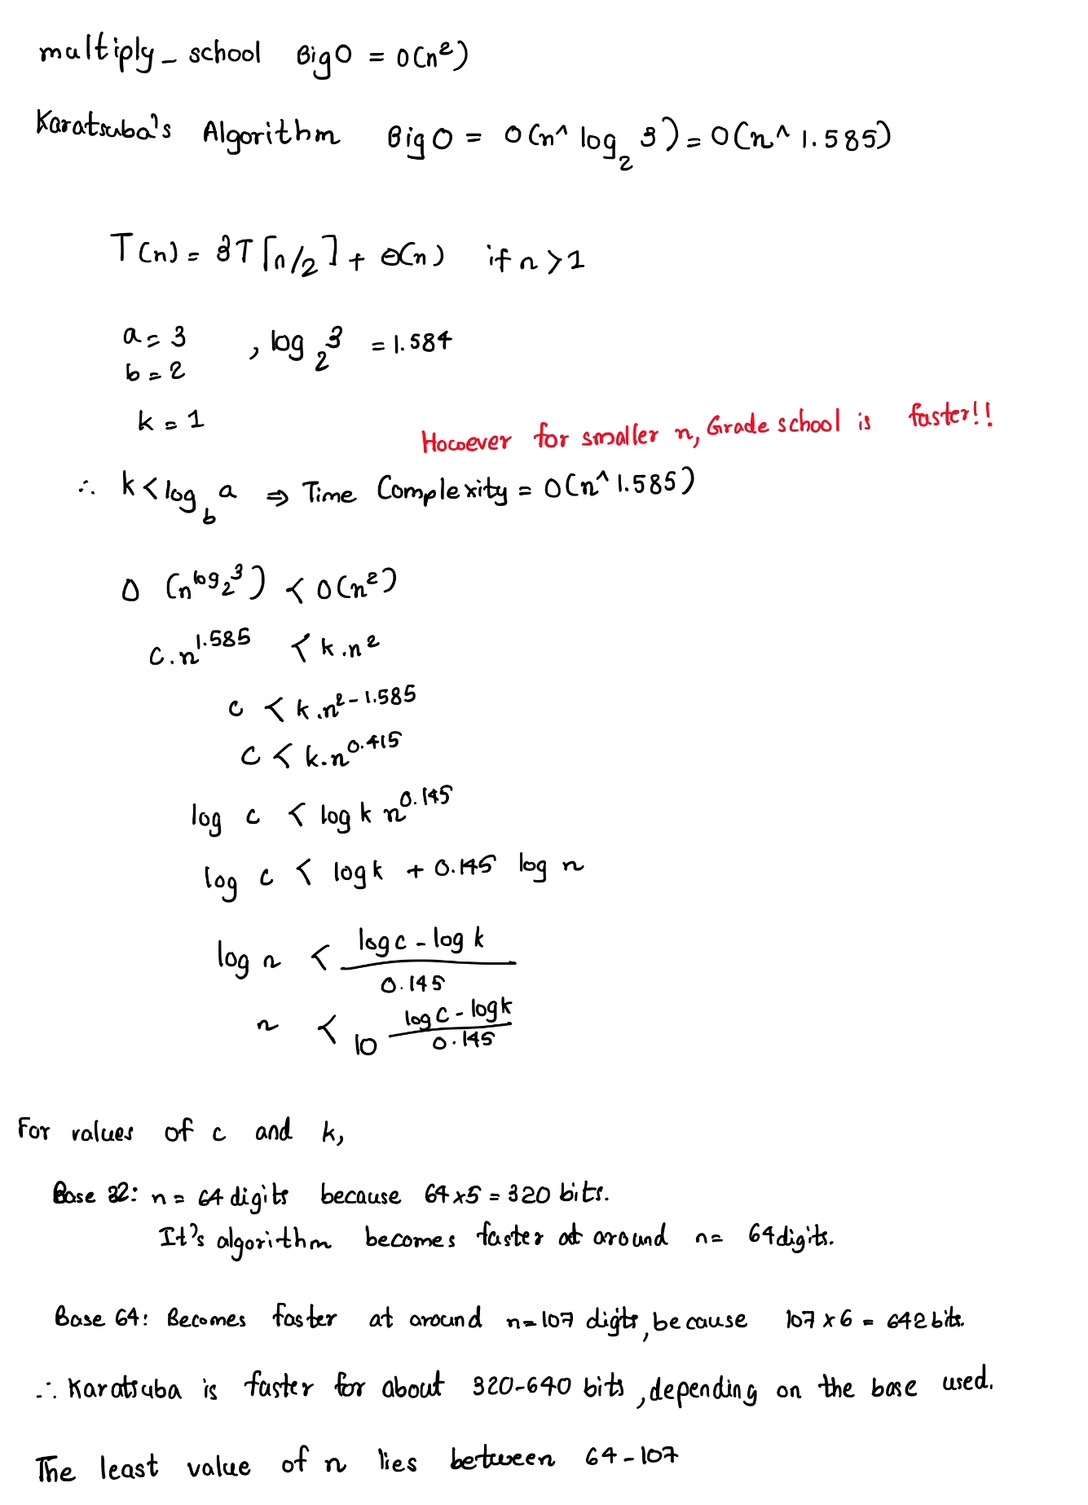 multiply_school BigO = O(n²)
Karatsuba's Algorithm BigO = O(n^ log₂ 3) = O(n^ 1.585)
T(n) = 3T⌈n/2⌉ + Θ(n) if n > 1
a = 3 , log₂3 = 1.584
b = 2
k = 1
However for smaller n, Grade school is faster!!
∴ k < log_b a ⇒ Time Complexity = O(n^ 1.585)
O (n^log₂3) < O(n²)
c.n^1.585 < k.n²
c < k.n^2-1.585
c < k.n^0.415
log c < log k n^0.145
log c < log k + 0.145 log n
log n < (log c - log k)/0.145
n < 10^(log c - log k)/0.145
For values of c and k,
Base 32: n = 64 digits because 64x5 = 320 bits.
It's algorithm becomes faster at around n= 64 digits.
Base 64: Becomes faster at around n=107 digits, because 107 x 6 = 642 bits.
∴ Karatsuba is faster for about 320-640 bits, depending on the base used.
The least value of n lies between 64-107